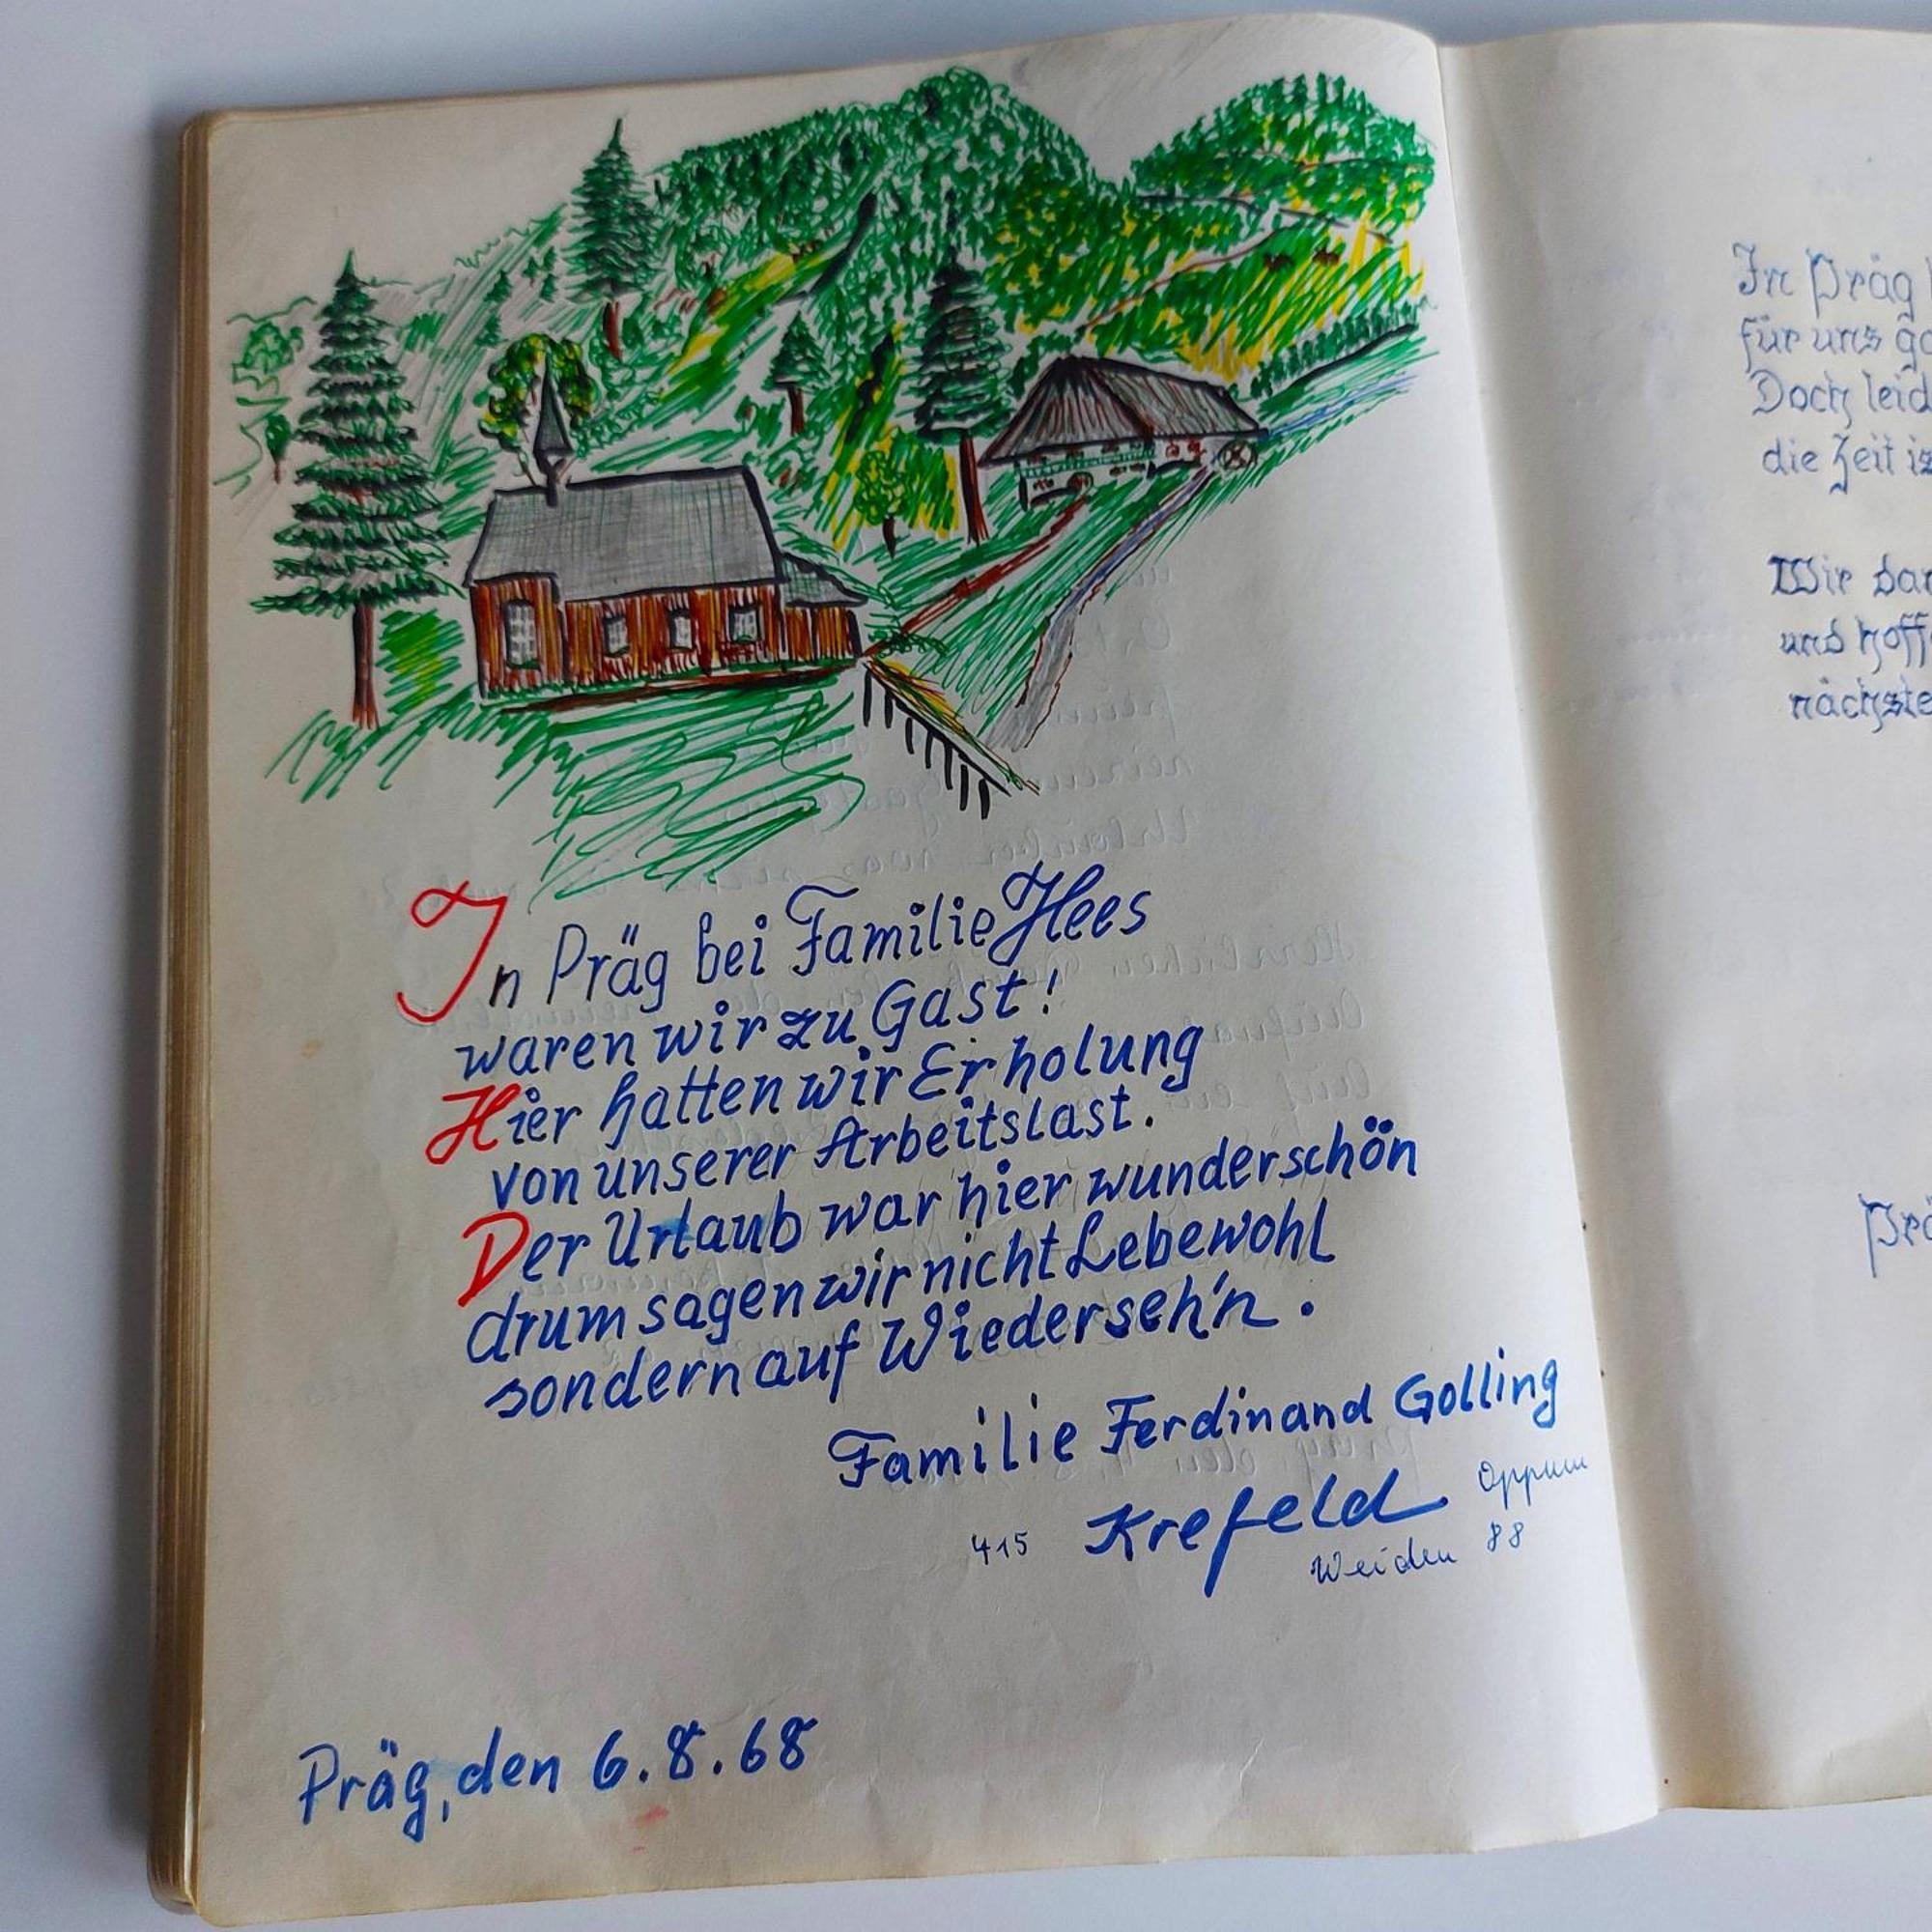 In Präg bei Familie Hees
waren wir zu Gast!
Hier hatten wir Erholung
von unserer Arbeitslast.
Der Urlaub war hier wunderschön
drum sagen wir nicht Lebewohl
sondern auf Wiederseh'n.
Familie Ferdinand Golling
415 Krefeld Oppum
Weiden 88
Präg, den 6.8.68
In Präg
für uns
Doch
die Zeit
Wir
und